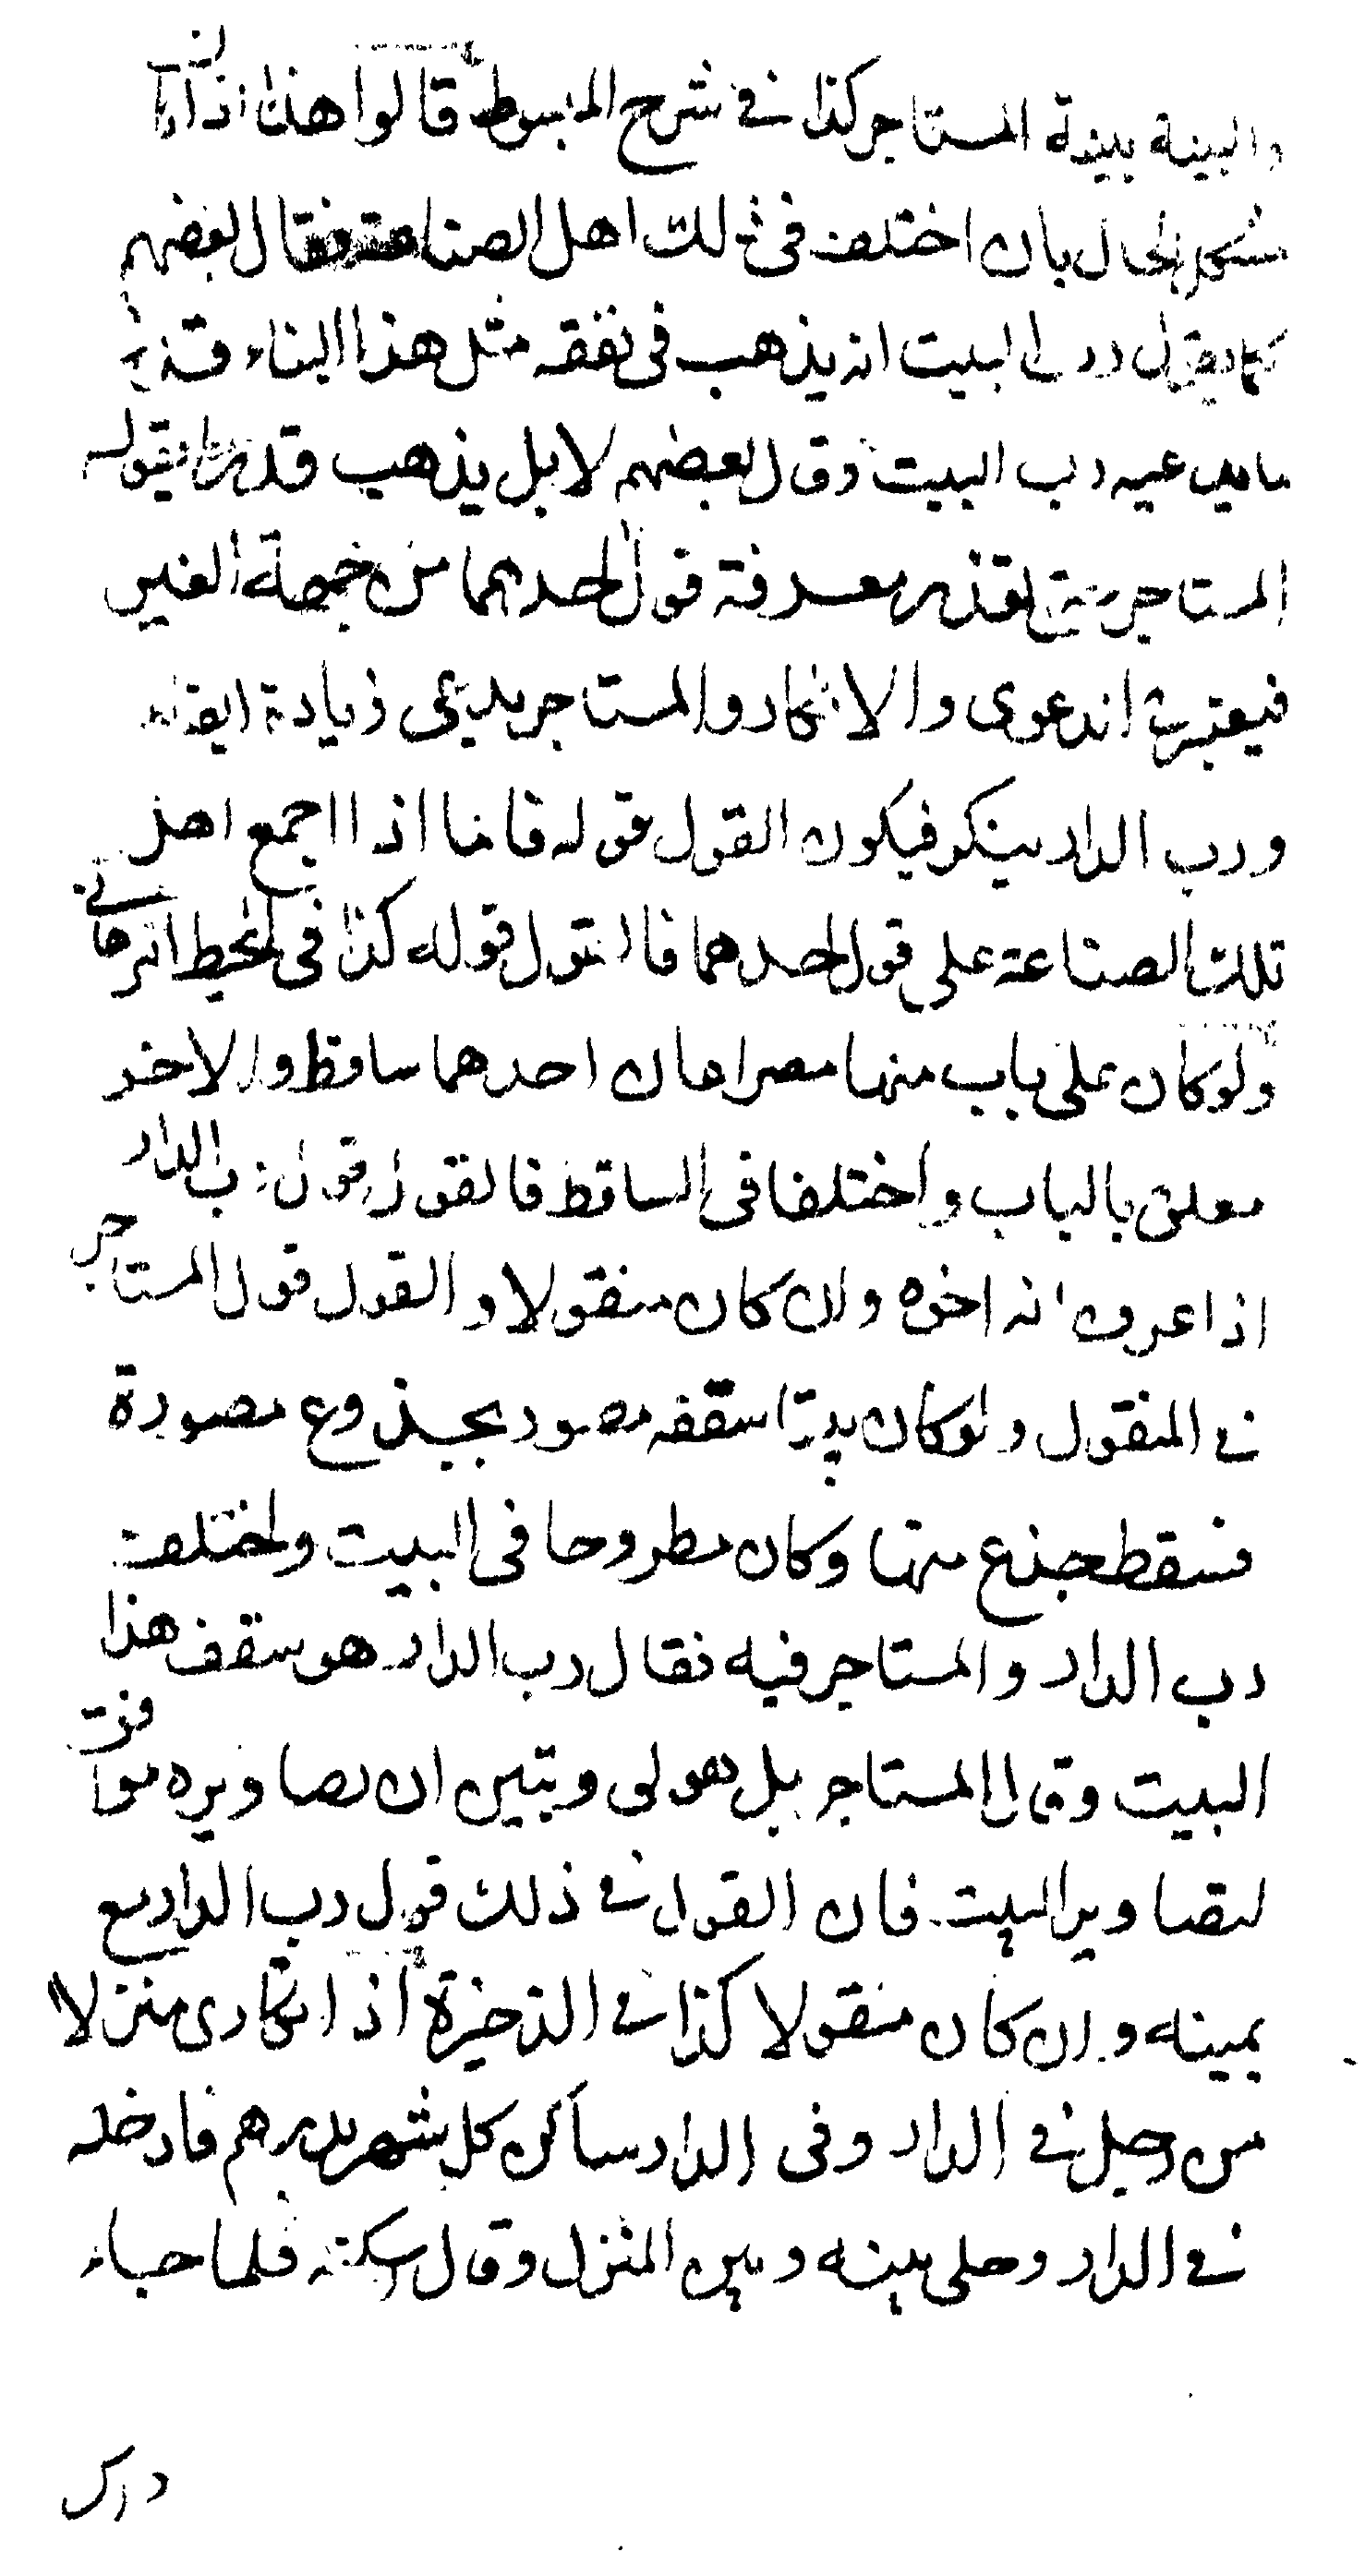 والبينة بينة المستاجر كذا في شرح المبسوط قالوا هذا اذا كان
مشكل الحال بان اختلف في ذلك اهل الصناعة فقال بعضهم
كما يقول رب البيت انه يذهب في نفقه مثل هذا البناء قدر
ما يدعيه رب البيت وقال بعضهم لا بل يذهب قدر ما يقوله
المستاجر لتعذر معرفة قول احدهما من جهة الغير
فيعتبر الدعوى والانكار والمستاجر يدعي زيادة ايفاء
ورب الدار ينكر فيكون القول قوله فاما اذا اجمع اهل
تلك الصناعة على قول احدهما فالقول قوله كذا في المحيط البرهاني
ولو كان على باب منها مصراعان احدهما ساقط والاخر
معلق بالباب واختلفا في الساقط فالقول قول رب الدار
اذا عرف انه اخوه وان كان منقولا والقول قول المستاجر
في المنقول ولو كان بيتا سقفه مصور بجذوع مصورة
فسقط جذع منها وكان مطروحا في البيت واختلف
رب الدار والمستاجر فيه فقال رب الدار هو سقف هذا
البيت وقال المستاجر بل هو لي وتبين ان تصاويره موافقة
لتصاوير البيت فان القول في ذلك قول رب الدار مع
يمينه وان كان منقولا كذا في الذخيرة اذا تكارى منزلا
من رجل في الدار وفي الدار ساكن كل شهر بدرهم فادخله
في الدار وخلى بينه وبين المنزل وقال اسكنه فلما جاء